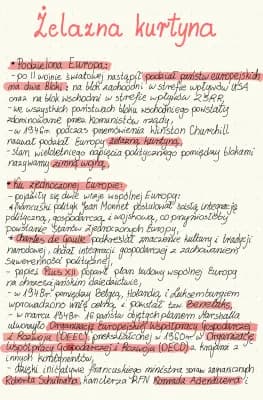 Żelazna kurtyna
• Podzielona Europa:
- po II wojnie światowej nastąpił podział państw europejskich
na dwa bloki: na blok zachodni w strefie wpływów USA
oraz na blok wschodni w strefie wpływów ZSRR,
- we wszystkich państwach bloku wschodniego powstały
zdominowane przez komunistów rządy,
- w 1946r. podczas przemówienia Winston Churchill
nazwał podział Europy żelazną kurtyną,
- stan wieloletniego napięcia politycznego pomiędzy blokami
nazywamy zimną wojną,
• Ku zjednoczonej Europie:
- pojawiły się dwie wizje wspólnej Europy:
• francuski polityk Jean Monnet postulował ścisłą integrację
polityczną, gospodarczą i wojskową, co przyniosłoby
powstanie Stanów Zjednoczonych Europy,
• Charles de Gaulle podkreślał znaczenie kultury i tradycji
narodowej, chciał integracji gospodarczej z zachowaniem
suwerenności politycznej,
- papież Pius XII poparł plan budowy wspólnej Europy
na chrześcijańskim dziedzictwie,
- w 1948r. pomiędzy Belgią, Holandią i Luksemburgiem
wprowadzono unię celną, i powstał tzw. Beneluks,
- w marcu 1948r. 16 państw objętych planem Marshalla
utworzyło Organizację Europejskiej Współpracy Gospodarczej
i Rozwoju (OEEC), przekształconej w 1960r. w Organizację
Współpracy Gospodarczej i Rozwoju (OECD) z krajów z
innych kontynentów,
- dzięki inicjatywie francuskiego ministra spraw zagranicznych
Roberta Schumana, kanclerza RFN Konrada Adenauera i